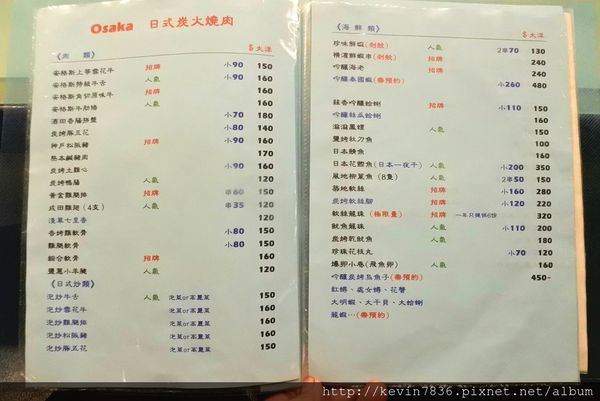 Osaka 日式炭火燒肉
《肉 類》 $大洋
安格斯上等雪花牛 招牌 小90 150
安格斯特級牛舌 人氣 小90 160
安格斯角切原味牛 招牌 160
安格斯牛肋條 人氣 160
酒田香腸拼盤 小70 180
炭烤豚五花 小80 140
神戶松阪豬 招牌 小90 160
熊本鹹豬肉 170
炭烤土雞心 小90 160
炭烤鴨腸 人氣 120
黃金雞腿排 招牌 串60 150
成田雞翅 (4支) 人氣 串35 120
淺草七里香 120
香烤雞軟骨 小80 150
雞腿軟骨 小80 150
綜合軟骨 招牌 160
蘆蔥小羊腿 人氣 120
《日式炒類》
泡炒牛舌 人氣 泡菜or高麗菜 150
泡炒雪花牛 泡菜or高麗菜 160
泡炒雞腿排 泡菜or高麗菜 160
泡炒松阪豬 泡菜or高麗菜 160
泡炒豚五花 泡菜or高麗菜 150
《海鮮類》 $大洋
珍味鮮蝦(劍蝦) 人氣 2串70 130
橫濱鮮蝦串(劍蝦) 招牌 240
吟釀海老 招牌 240
吟釀泰國蝦(需預約) 小260 480
蒜香吟釀蛤蜊 招牌 小110 150
吟釀絲瓜蛤蜊 160
滋滋鳳螺 人氣 150
鹽烤秋刀魚 100
日本鯖魚 160
日本花鯽魚(日本一夜干) 人氣 小200 350
風地柳葉魚 (8隻) 人氣 小50 150
築地軟絲 招牌 小160 280
炭烤軟絲腳 招牌 小120 220
軟絲龍珠 (極限量) 招牌 一年只償味6份 320
魷魚龍珠 人氣 小110 200
炭烤乾魷魚 人氣 160
珍珠花枝丸 小70 120
爆卵小卷(飛魚卵) 人氣 160
吟釀炭烤烏魚子(需預約) 450~
紅蟳、處女蟳、花蟹
大明蝦、大干貝、大蛤蜊
龍蝦…(需預約)
http://kevin7836.pixnet.net/album